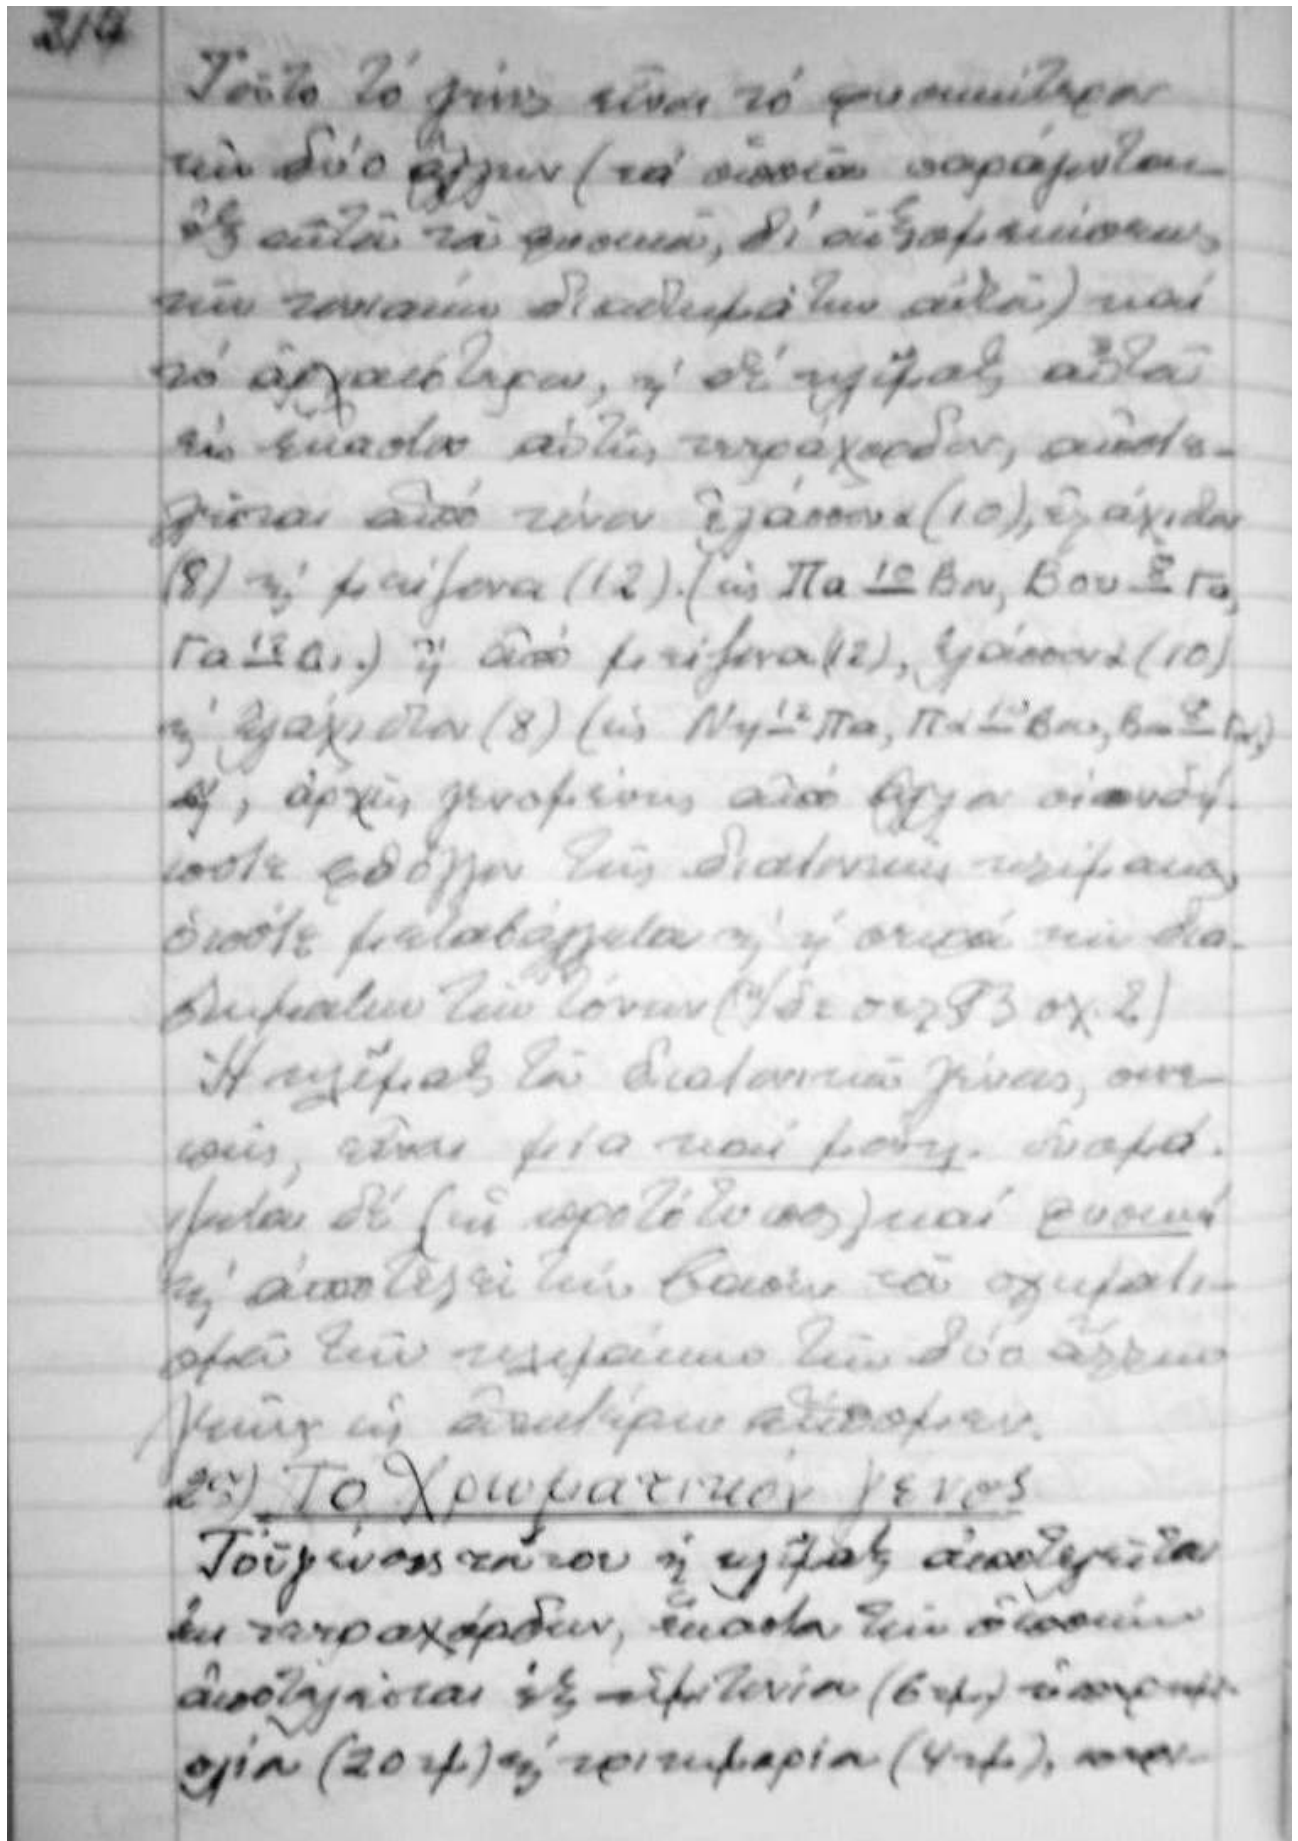 214
Τοῦτο τό γένος εἶναι τό φυσικώτερον
τῶν δύο ἄλλων (τά ὁποῖα παράγονται
ἐξ αὐτοῦ τοῦ φυσικοῦ, δι'
τῶν τονιαίων διαστημάτων αὐτοῦ) καί
τό ἀρχαιότερον, ἡ δέ κλῖμαξ αὐτοῦ
εἰς ἕκαστον αὐτῆς τετράχορδον, ἀποτε-
λεῖται ἀπό τόνον ἐλάσσονα (10), ἐλάχιστον
(8) κ' μείζονα (12). (ὡς Πα 10 Βου, Βου 8 Γα,
Γα 12 Δι.) ἤ ἀπό μείζονα (12), ἐλάσσονα (10)
κ' ἐλάχιστον (8) (ὡς Νη 12 Πα, Πα 10 Βου, Βου 8 Γα,)
κ', ἀρχῆς γενομένης ἀπό ἄλλον οἱονδή-
ποτε φθόγγον τῆς διατονικῆς κλίμακος,
ὁπότε μεταβάλλεται κ' ἡ σειρά τῶν δια-
στημάτων τῶν τόνων (ἴδε σελ 93 σχ. 2)
Ἡ κλῖμαξ τοῦ διατονικοῦ γένους, συνε-
πῶς, εἶναι μία καί μόνη. ὀνομά-
ζεται δέ (ὡς πρωτότυπος) καί φυσική
κ' ἀποτελεῖ τήν βάσιν τοῦ σχηματι-
σμοῦ τῶν κλιμάκων τῶν δύο ἄλλων
γενῶν ὡς ἀνωτέρω εἴπομεν.
2ον) Τό Χρωματικόν γένος
Τοῦ γένους τούτου ἡ κλῖμαξ ἀποτελεῖται
ἐκ τετραχόρδων, ἕκαστον τῶν ὁποίων
ἀποτελεῖται ἐξ ἡμιτονίου (6 τμ,)
(20 τμ) κ' τριτημορίου (4 τμ),